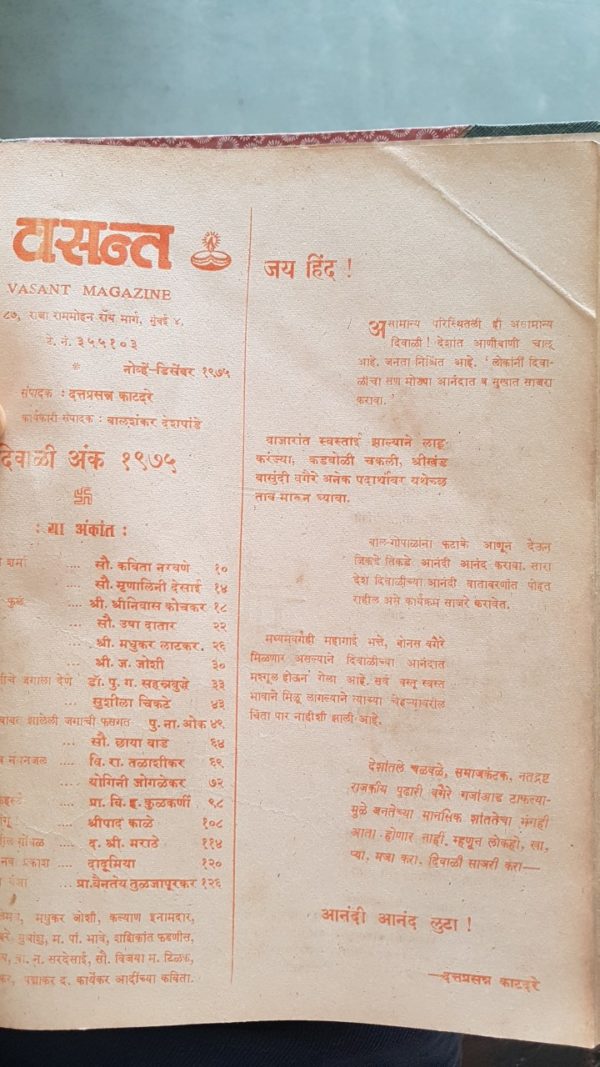 वसन्त
VASANT MAGAZINE
८७, राजा राममोहन रॉय मार्ग, मुंबई ४.
टे. नं. ३५५१०३
नोव्हें-डिसेंबर १९७५
संपादक : दत्तप्रसन्न काटदरे
कार्यकारी-संपादक : बाळशंकर देशपांडे
दिवाळी अंक १९७५
: या अंकांत :
शर्मा .... सौ. कविता नरवणे १०
.... सौ. मृणालिनी देसाई १४
फुलं .... श्री. श्रीनिवास कोचकर १८
... सौ. उषा दातार २२
... श्री. मधुकर लाटकर. २६
... श्री. ज. जोशी ३०
जगाला देणे डॉ. पु. ग. सहस्रबुद्धे ३३
... सुशीला चिकटे ४३
झालेली जगाची फसगत पु. ना. ओक ४९
... सौ. छाया वाड ६४
... वि. रा. तळाशीकर ६९
योगिनी जोगळेकर ७२
... प्रा. वि. ह. कुळकर्णी ९८
... श्रीपाद काळे १०८
... द. श्री. मराठे ११४
प्रकाश ... दादूमिया १२०
... प्रा. वैनतेय तुळजापूरकर १२६
मधुकर जोशी, कल्याण इनामदार,
सुधांशु, म. पां. भावे, शशिकांत फडणीस,
वा. न. सरदेसाई, सौ. विजया म. टिळक,
पद्माकर द. कार्येकर आदींच्या कविता.
जय हिंद !
असामान्य परिस्थितली ही असामान्य
दिवाळी ! देशांत आणीबाणी चालू
आहे. जनता निश्चित आहे. ' लोकांनीं दिवा-
ळीचा सण मोठ्या आनंदात व सुखात साजरा
करावा. '
बाजारांत स्वस्ताई झाल्याने लाडू-
करंज्या, कडबोळी चकली, श्रीखंड
बासुंदी वगैरे अनेक पदार्थांवर यथेच्छ
ताव मारून घ्यावा.
बाल-गोपाळांना फटाके आणून देऊन
जिकडे तिकडे आनंदी आनंद करावा. सारा
देश दिवाळीच्या आनंदी वातावरणांत पोहत
राहील असे कार्यक्रम साजरे करावेत.
मध्यमवर्गही महागाई भत्ते, बोनस वगैरे
मिळणार असल्याने दिवाळीच्या आनंदात
मश्गूल होऊन गेला आहे. सर्व वस्तू स्वस्त
भावाने मिळू लागल्याने त्याच्या चेहऱ्यावरील
चिंता पार नाहीशी झाली आहे.
देशांतले चळवळे, समाजकंटक, नतद्रष्ट
राजकीय पुढारी वगैरे गजांआड टाकल्या-
मुळे जनतेच्या मानसिक शांततेचा भंगही
आता होणार नाही. म्हणून लोकहो, खा,
प्या, मजा करा, दिवाळी साजरी करा—
आनंदी आनंद लुटा !
—दत्तप्रसन्न काटदरे